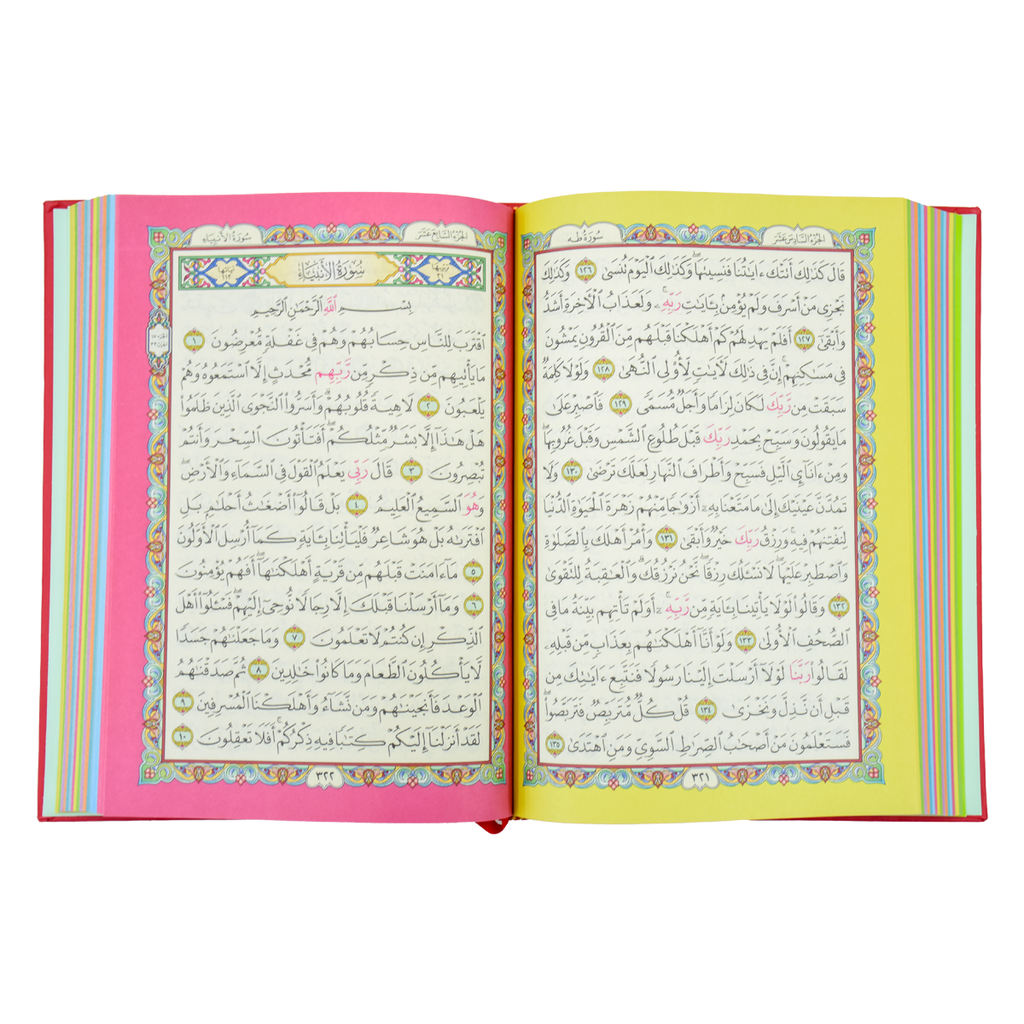 الجزء السادس عشر
سورة طه
قَالَ كَذَٰلِكَ أَتَتْكَ ءَايَٰتُنَا فَنَسِيتَهَا ۖ وَكَذَٰلِكَ ٱلْيَوْمَ تُنسَىٰ ١٢٦ وَكَذَٰلِكَ
نَجْزِى مَنْ أَسْرَفَ وَلَمْ يُؤْمِنۢ بِـَٔايَٰتِ رَبِّهِۦ ۚ وَلَعَذَابُ ٱلْءَاخِرَةِ أَشَدُّ
وَأَبْقَىٰٓ ١٢٧ أَفَلَمْ يَهْدِ لَهُمْ كَمْ أَهْلَكْنَا قَبْلَهُم مِّنَ ٱلْقُرُونِ يَمْشُونَ
فِى مَسَٰكِنِهِمْ ۗ إِنَّ فِى ذَٰلِكَ لَءَايَٰتٍ لِّأُو۟لِى ٱلنُّهَىٰ ١٢٨ وَلَوْلَا كَلِمَةٌ
سَبَقَتْ مِن رَّبِّكَ لَكَانَ لِزَامًا وَأَجَلٌ مُّسَمًّى ١٢٩ فَٱصْبِرْ عَلَىٰ
مَا يَقُولُونَ وَسَبِّحْ بِحَمْدِ رَبِّكَ قَبْلَ طُلُوعِ ٱلشَّمْسِ وَقَبْلَ غُرُوبِهَا ۖ
وَمِنْ ءَانَآئِ ٱلَّيْلِ فَسَبِّحْ وَأَطْرَافَ ٱلنَّهَارِ لَعَلَّكَ تَرْضَىٰ ١٣٠ وَلَا
تَمُدَّنَّ عَيْنَيْكَ إِلَىٰ مَا مَتَّعْنَا بِهِۦٓ أَزْوَٰجًا مِّنْهُمْ زَهْرَةَ ٱلْحَيَوٰةِ ٱلدُّنْيَا
لِنَفْتِنَهُمْ فِيهِ ۚ وَرِزْقُ رَبِّكَ خَيْرٌ وَأَبْقَىٰ ١٣١ وَأْمُرْ أَهْلَكَ بِٱلصَّلَوٰةِ
وَٱصْطَبِرْ عَلَيْهَا ۖ لَا نَسْـَٔلُكَ رِزْقًا ۖ نَّحْنُ نَرْزُقُكَ ۗ وَٱلْعَٰقِبَةُ لِلتَّقْوَىٰ
١٣٢ وَقَالُوا۟ لَوْلَا يَأْتِينَا بِـَٔايَةٍ مِّن رَّبِّهِۦٓ ۚ أَوَلَمْ تَأْتِهِم بَيِّنَةُ مَا فِى
ٱلصُّحُفِ ٱلْأُولَىٰ ١٣٣ وَلَوْ أَنَّآ أَهْلَكْنَٰهُم بِعَذَابٍ مِّن قَبْلِهِۦ
لَقَالُوا۟ رَبَّنَا لَوْلَآ أَرْسَلْتَ إِلَيْنَا رَسُولًا فَنَتَّبِعَ ءَايَٰتِكَ مِن
قَبْلِ أَن نَّذِلَّ وَنَخْزَىٰ ١٣٤ قُلْ كُلٌّ مُّتَرَبِّصٌ فَتَرَبَّصُوا۟ ۖ
فَسَتَعْلَمُونَ مَنْ أَصْحَٰبُ ٱلصِّرَٰطِ ٱلسَّوِىِّ وَمَنِ ٱهْتَدَىٰ ١٣٥
٣٢١
الجزء السابع عشر
سورة الأنبياء
سُورَةُ الأَنْبِيَاءِ
بِسْمِ ٱللَّهِ ٱلرَّحْمَٰنِ ٱلرَّحِيمِ
ٱقْتَرَبَ لِلنَّاسِ حِسَابُهُمْ وَهُمْ فِى غَفْلَةٍ مُّعْرِضُونَ ١
مَا يَأْتِيهِم مِّن ذِكْرٍ مِّن رَّبِّهِم مُّحْدَثٍ إِلَّا ٱسْتَمَعُوهُ وَهُمْ
يَلْعَبُونَ ٢ لَاهِيَةً قُلُوبُهُمْ ۗ وَأَسَرُّوا۟ ٱلنَّجْوَى ٱلَّذِينَ ظَلَمُوا۟
هَلْ هَٰذَآ إِلَّا بَشَرٌ مِّثْلُكُمْ ۖ أَفَتَأْتُونَ ٱلسِّحْرَ وَأَنتُمْ
تُبْصِرُونَ ٣ قَالَ رَبِّى يَعْلَمُ ٱلْقَوْلَ فِى ٱلسَّمَآءِ وَٱلْأَرْضِ ۖ
وَهُوَ ٱلسَّمِيعُ ٱلْعَلِيمُ ٤ بَلْ قَالُوٓا۟ أَضْغَٰثُ أَحْلَٰمٍۭ بَلِ
ٱفْتَرَىٰهُ بَلْ هُوَ شَاعِرٌ فَلْيَأْتِنَا بِـَٔايَةٍ كَمَآ أُرْسِلَ ٱلْأَوَّلُونَ
٥ مَآ ءَامَنَتْ قَبْلَهُم مِّن قَرْيَةٍ أَهْلَكْنَٰهَآ ۖ أَفَهُمْ يُؤْمِنُونَ
٦ وَمَآ أَرْسَلْنَا قَبْلَكَ إِلَّا رِجَالًا نُّوحِىٓ إِلَيْهِمْ ۖ فَسْـَٔلُوٓا۟ أَهْلَ
ٱلذِّكْرِ إِن كُنتُمْ لَا تَعْلَمُونَ ٧ وَمَا جَعَلْنَٰهُمْ جَسَدًا
لَّا يَأْكُلُونَ ٱلطَّعَامَ وَمَا كَانُوا۟ خَٰلِدِينَ ٨ ثُمَّ صَدَقْنَٰهُمُ
ٱلْوَعْدَ فَأَنجَيْنَٰهُمْ وَمَن نَّشَآءُ وَأَهْلَكْنَا ٱلْمُسْرِفِينَ ٩
لَقَدْ أَنزَلْنَآ إِلَيْكُمْ كِتَٰبًا فِيهِ ذِكْرُكُمْ ۖ أَفَلَا تَعْقِلُونَ ١٠
٣٢٢